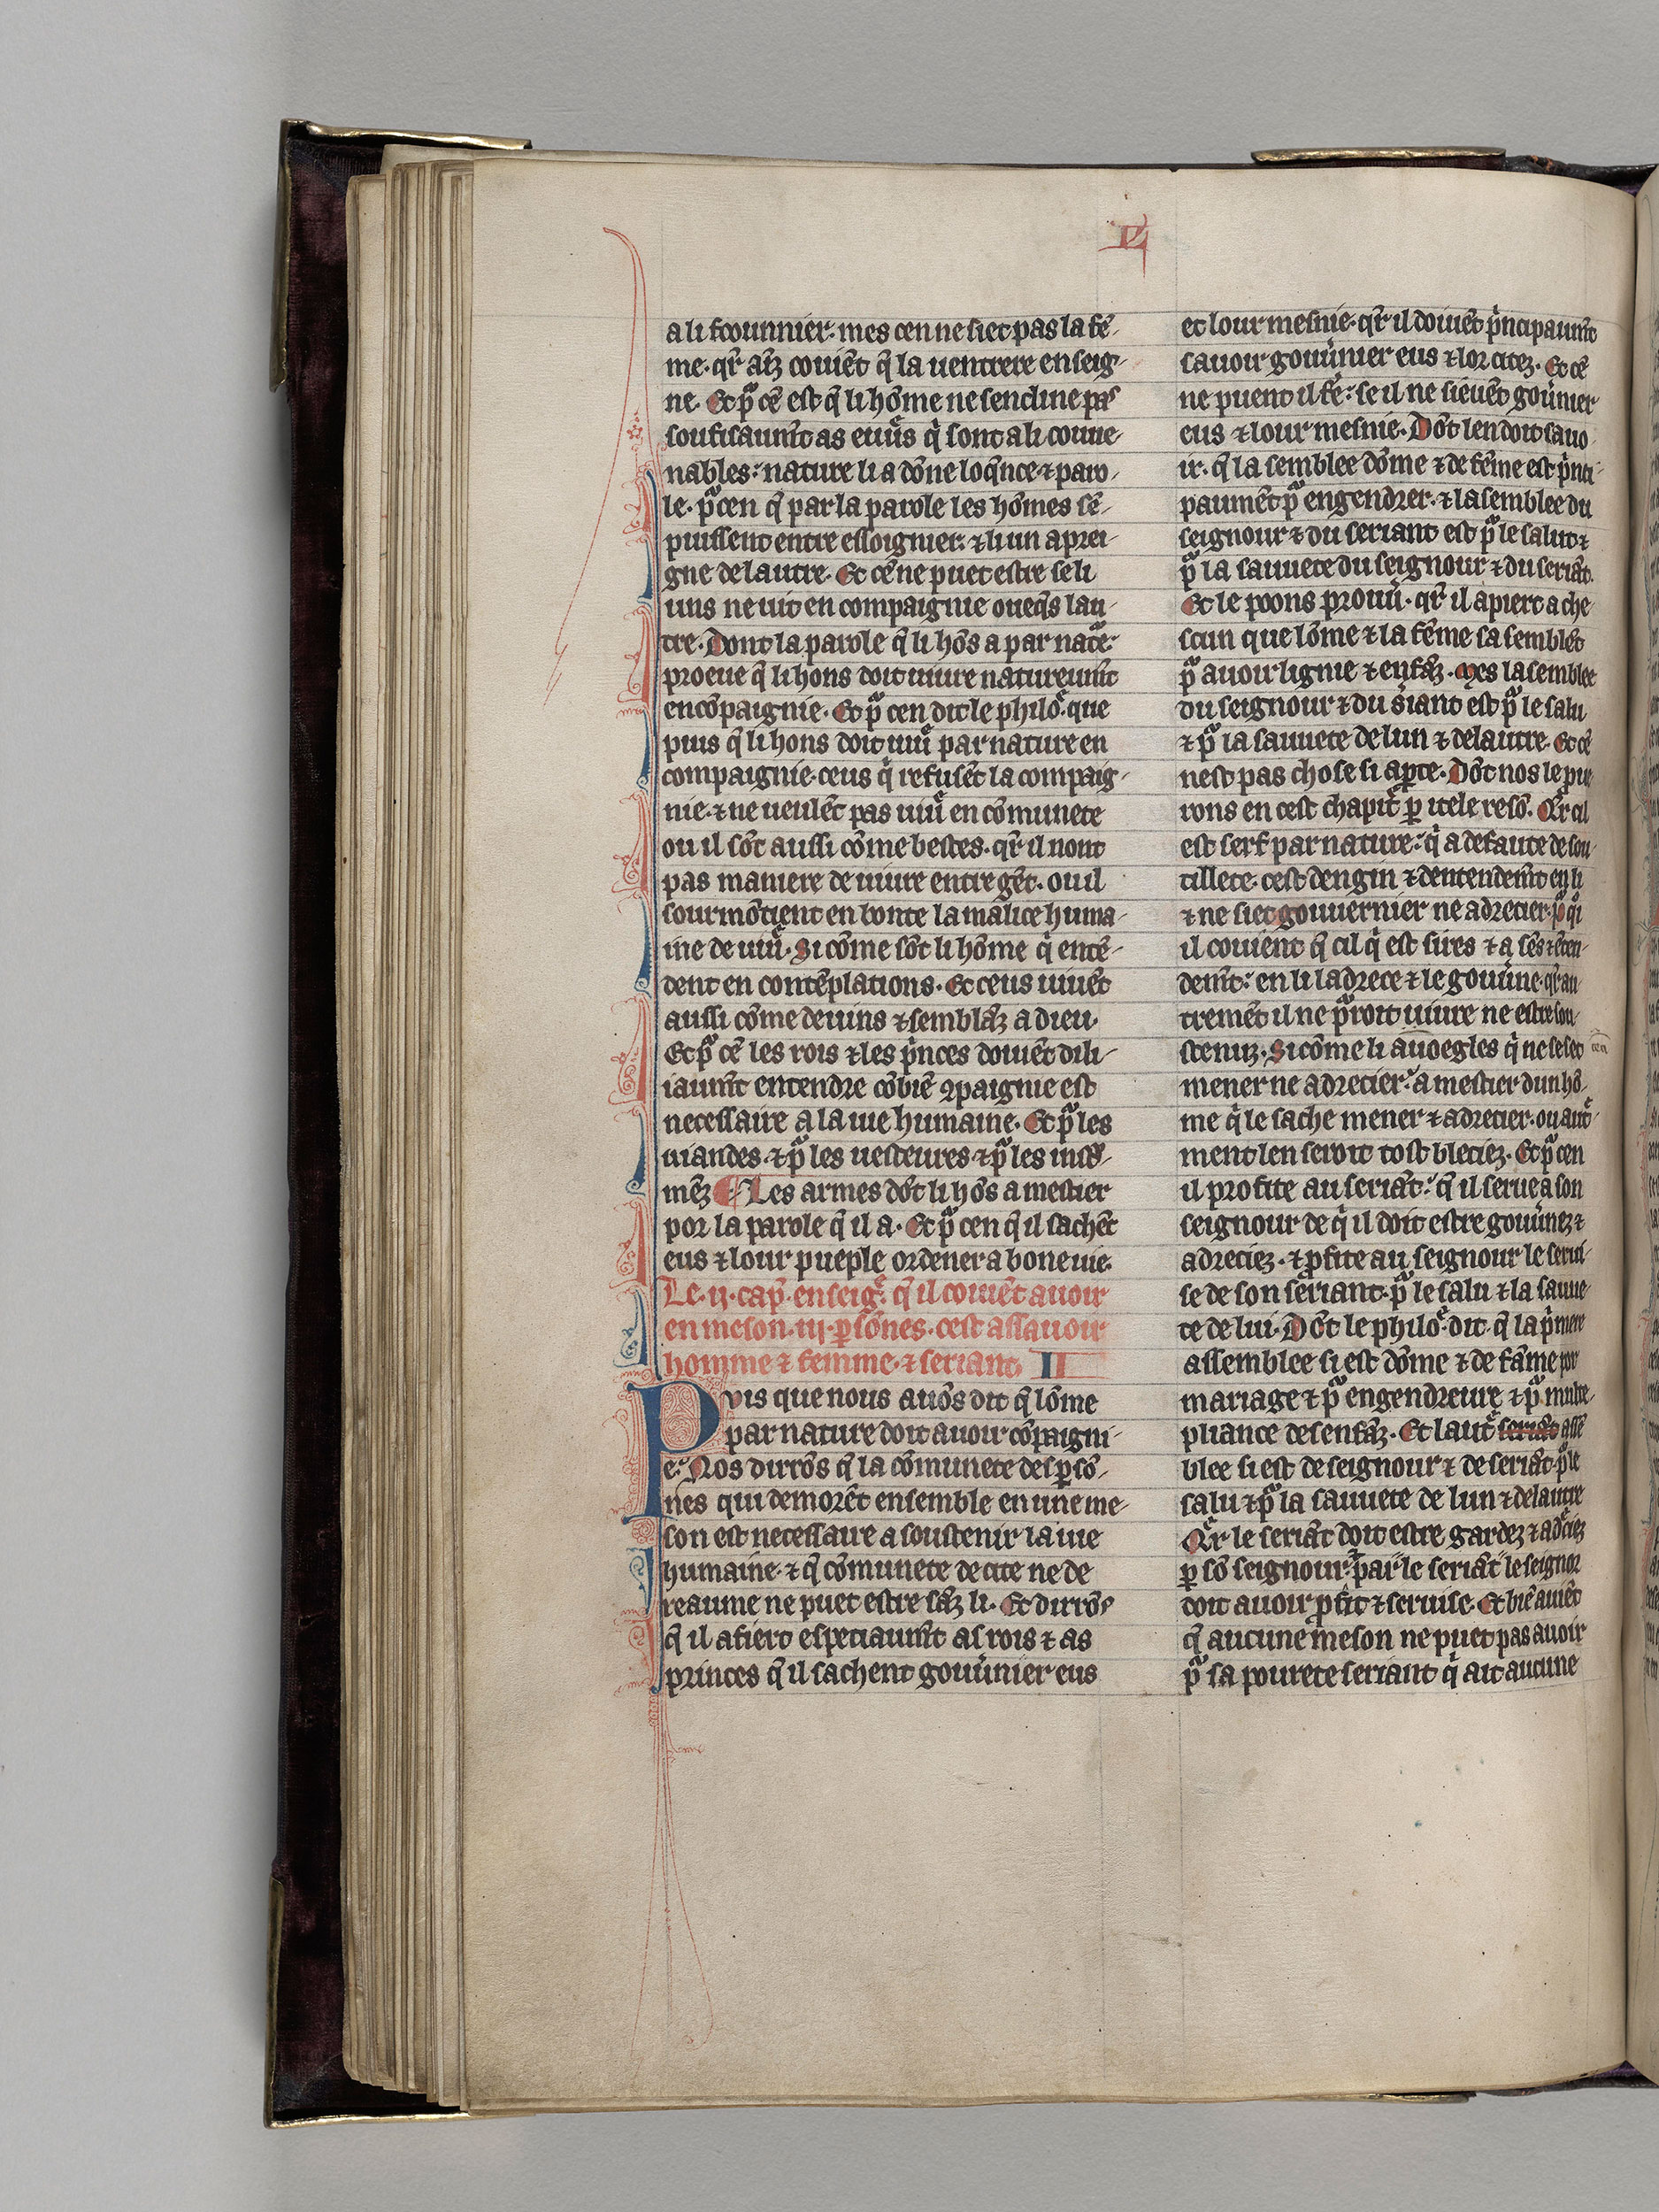 L
a li fcounnier. mes cen ne siet pas la fē-
me. qr̄ aīz couiēt q̄ la uentrere enseig-
ne. Et pͣ cē est q̄ li hōme ne sencline pas
soufisaum̄t as euures q̄ sont a li coue-
nables: nature li a dōne loq̄nce ⁊ paro-
le. pͣ cen q̄ par la parole les hōmes sē-
puissent entre essoignier. ⁊ li un aprei-
gne de lautre. Et cē ne puet estre se li
uns ne uit en compaignie oueq̄s lau-
tre. Dont la parole q̄ li hōs a par nat᷑e.
proeue q̄ li hons doit uiure natureum̄t
en cōpaignie. Et pͣ cen dit le philo. que
puis q̄ li hons doit uiur᷑ par nature en
compaignie. ceus q̄ refusēt la compaig-
nie. ⁊ ne ueulēt pas uiur᷑ en cōmunete
ou il sōt aussi cōme bestes. qr̄ il nont
pas maniere de uiure entre gēt. ou il
sourmōtent en bonte la malice huma-
ine de uiur᷑. Si cōme sōt li hōme q̄ entē-
dent en contēplations. Et ceus uiuēt
aussi cōme deuins ⁊ semblāz a dieu.
Et pͣ cē les rois ⁊ les p̄nces doiuēt dili-
iaum̄t entendre cōbiē ꝯpaignie est
necessaire a la uie humaine. Et pͣ les
uiandes. ⁊ pͣ les uesteures ⁊ pͣ les
mēz ¶ Les armes dōt li hōs a mestier
por la parole q̄ il a. Et pͣ cen q̄ il sachēt
eus ⁊ lour pueple ordener a bone uie.
Le .ij. cap̄. enseig᷑. q̄ il couiēt auoir
en meson .iij. ꝑsōnes. cest assauoir
homme ⁊ femme. ⁊ seriant. II
Puis que nous auōs dit q̄ lōme
par nature doit auoir cōpaigni-
e: Nos dirrōs q̄ la cōmunete des ꝑsō-
nes qui demorēt ensemble en une me-
son est necessaire a soustenir la uie
humaine. ⁊ q̄ cōmunete de cite ne de
reaume ne puet estre sāz li. Et dirrōs
q̄ il afiert especiaum̄t as rois ⁊ as
princes q̄ il sachent gouūnier eus
et lour mesnie. qr̄ il doiuēt p̄ncipaum̄t
sauoir gouūnier eus ⁊ lor citez. Et cē
ne puent il fē: se il ne sieuēt goūnier
eus ⁊ lour mesnie. Dōt len doit sauo-
ir. q̄ la semblee dōme ⁊ de fēme est p̄nci-
paumēt pͣ engendrer. ⁊ la semblee du
seignour ⁊ du seriant est pͣ le salut ⁊
pͣ la sauuete du seignour ⁊ du seriāt.
Et le poons prouū. qr̄ il apiert a che-
scun que lōme ⁊ la fēme sa semblēt
pͣ auoir lignie ⁊ enfāz. Mes la semblee
du seignour ⁊ du s̄iant est pͣ le salu
⁊ pͣ la sauuete de lun ⁊ de lautre. Et cē
nest pas chose si aperte. Dōt nos le pu-
rons en cest chapit᷑ ꝑ itele resō. Qr̄ cil
est serf par nature: q̄ a defaute de sou-
tillete. cest dengin ⁊ dentendem̄t en li
⁊ ne siet gouuernier ne adrecier. pͣ qi
il couient q̄ cil q̄ est sires ⁊ a sēs ⁊ ēten-
dem̄t: en li ladrece ⁊ le gouūne. qr̄ au-
tremēt il ne pͣroit uiure ne estre sou-
stenuz. Si cōme li auoegles q̄ ne se set
mener ne adrecier. a mestier dun hō-
me q̄ le sache mener ⁊ adrecier. ou aut᷑-
ment len seroit tost bleciez. Et pͣ cen
il profite au seriāt: q̄ il serue a son
seignour de q̄ il doit estre gouūnez ⁊
adreciez. ⁊ ꝓfite au seignour le serui-
se de son seriant. pͣ le salu ⁊ la sauue-
te de lui. Dōt le philo. dit. q̄ la p̄miere
assemblee si est dōme ⁊ de fāme por
mariage ⁊ pͣ engendreure ⁊ pͣ multe-
pliance des enfāz. Et laut᷑ seriāt assē
blee si est de seignour ⁊ de seriāt. pͣ le
salu ⁊ pͣ la sauuete de lun ⁊ de lautre
Qr̄ le seriāt doit estre gardez ⁊ adr᷑ciez
ꝑ sō seignour. ⁊ par le seriāt le seignor
doit auoir ꝓfit ⁊ seruise. Et biē auiēt
q̄ aucune meson ne puet pas auoir
pͣ sa pourete seriant q̄ ait aucune